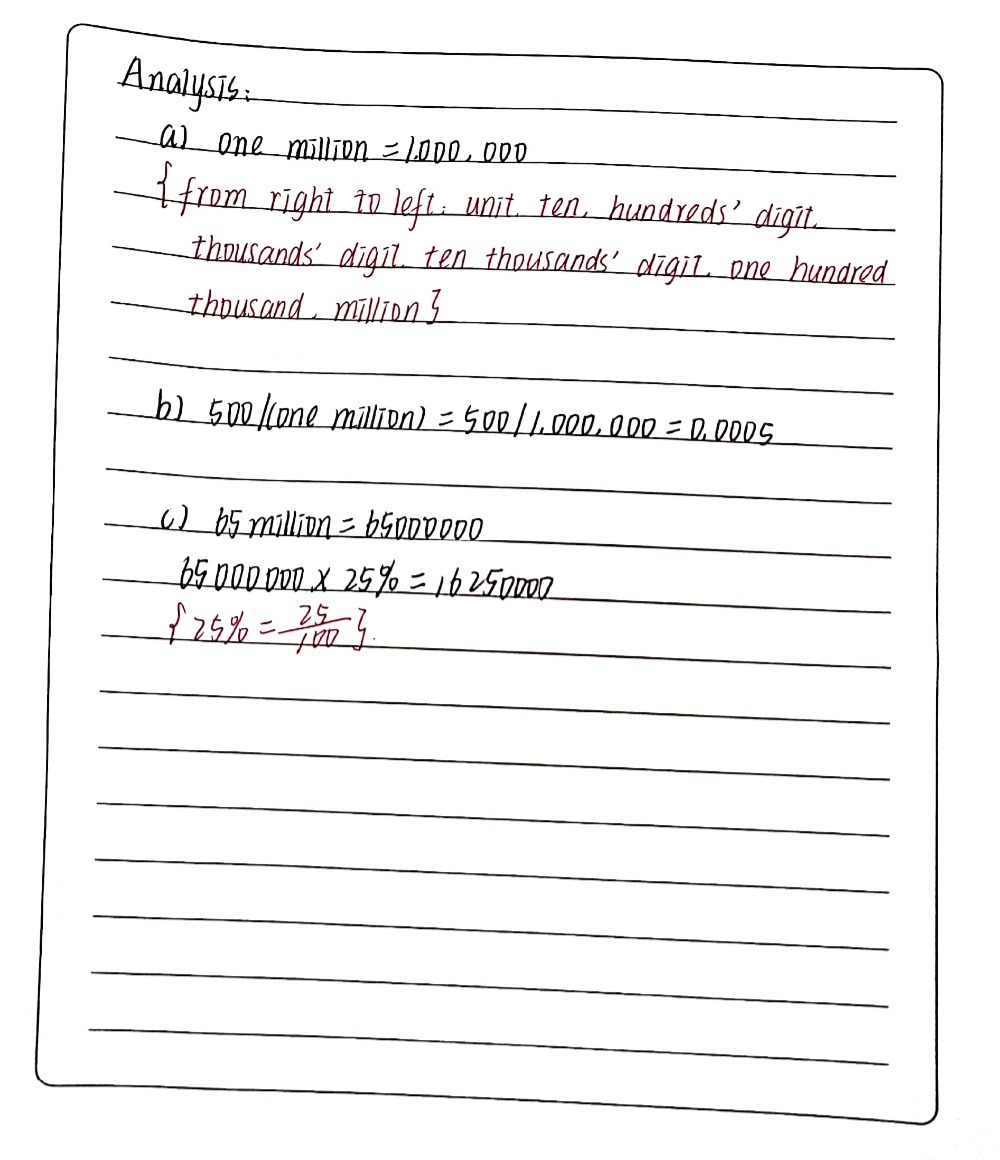 Analysis:
a) one million = 1,000,000
{from right to left: unit, ten, hundreds' digit,
thousands' digit, ten thousands' digit, one hundred
thousand, million}
b) 500/(one million) = 500/1,000,000 = 0.0005
c) 65 million = 65000000
65000000 x 25% = 16250000
{25% = 25/100}.